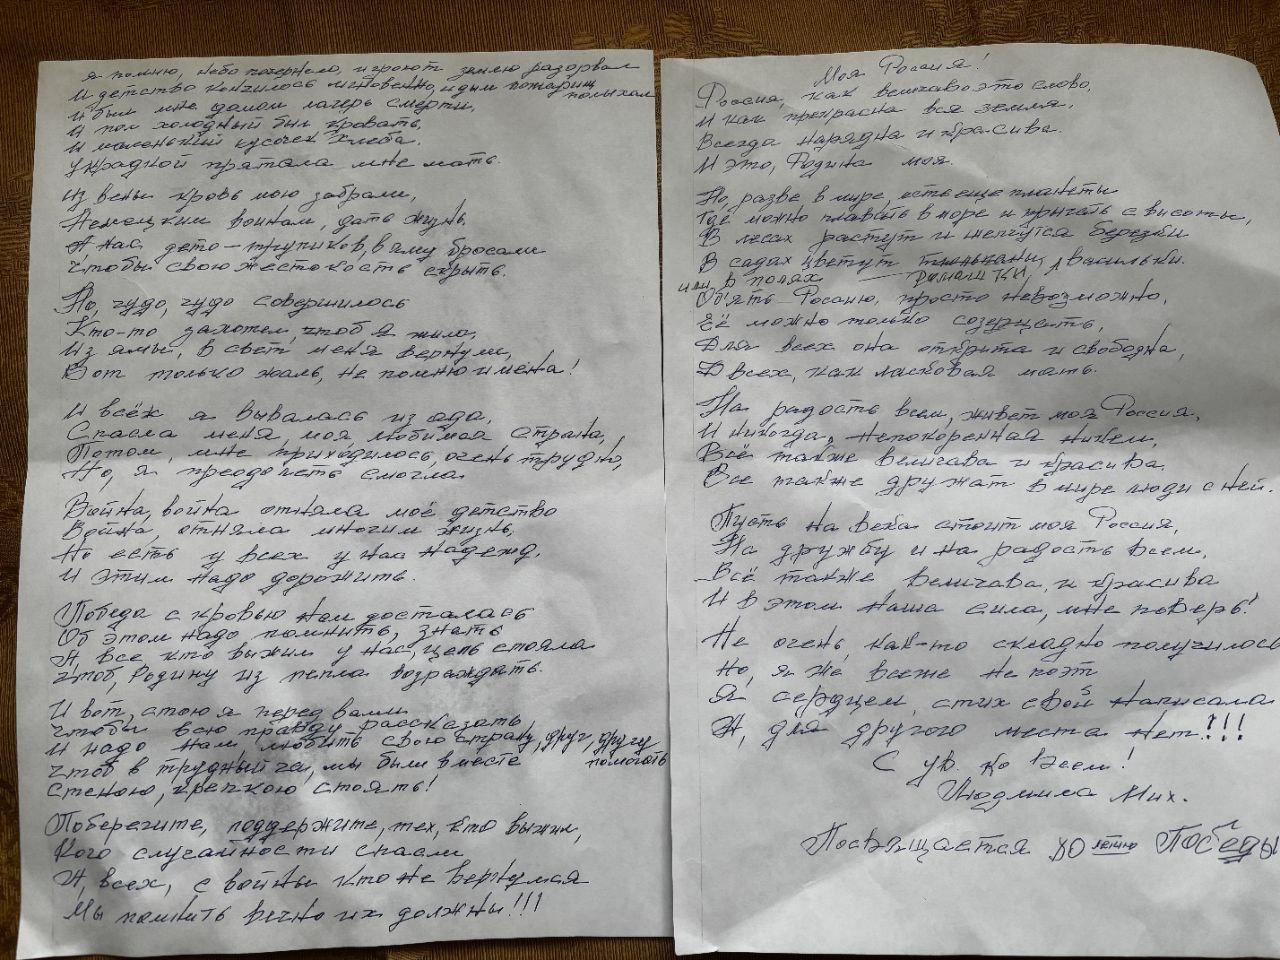 Я помню, небо почернело, и грохот землю разорвал
И детство кончилось мгновенно, и дым пожарищ
полыхал
И был мне домом лагерь смерти,
И пол холодный был кровать,
И маленький кусочек хлеба.
Украдкой прятала мне мать.
Из вены кровь мою забрали,
Немецким воинам, дать жизнь.
А нас дето-трупиков, в яму бросали
Чтобы свою жестокость скрыть.
Но, чудо, чудо совершилось
Кто-то захотел, чтоб я жила,
Из ямы, в свет меня вернули,
Вот только жаль, не помню имена!
И всёж я вырвалась из ада,
Спасла меня, моя, любимая страна,
Потом, мне приходилось, очень трудно,
Но, я преодолеть смогла.
Война, война отняла моё детство
Война, отняла многим жизнь,
Но есть у всех у нас надежд,
И этим надо дорожить.
Победа с кровью нам досталась
Об этом надо, помнить, знать
И, все кто выжил у нас, цель стояла
Чтоб, Родину из пепла возраждать.
И вот, стою я перед вами
Чтобы всю правду рассказать
И надо нам, любить свою страну, друг, другу
помогать
Чтоб в трудный час, мы были вместе
Стеною, крепкою стоять!
Поберегите, поддержите, тех, кто выжил,
Кого случайности спасли
И, всех, с войны кто не вернулся
Мы помнить вечно их должны!!!
Моя Россия!
Россия, как величаво это слово,
И как прекрасна вся земля,
Всегда нарядна и красива.
И это, Родина моя.
Но, разве в мире, есть еще планеты
Где можно плавать в море и прыгать с высоты,
В лесах растут и шепчутся березки
В садах цветут васильки.
или в полях ромашки,
Объять Россию, просто невозможно,
Её можно только созерцать,
Для всех она открыта и свободна,
Для всех, как ласковая мать.
На радость всем, живет моя Россия,
И никогда, непокоренная никем,
Всё также величава и красива
Все также дружат в мире люди с ней.
Пусть на века стоит моя Россия,
На дружбу и на радость всем,
Всё также величава, и красива
И в этом наша сила, мне поверь!
Не очень, как-то складно получилось
Но, я же всеже не поэт
Я сердцем, стих свой написала
И, для другого места нет!!!
С ув. ко всем!
Людмила Мих.
Посвящается 80 летию Победы